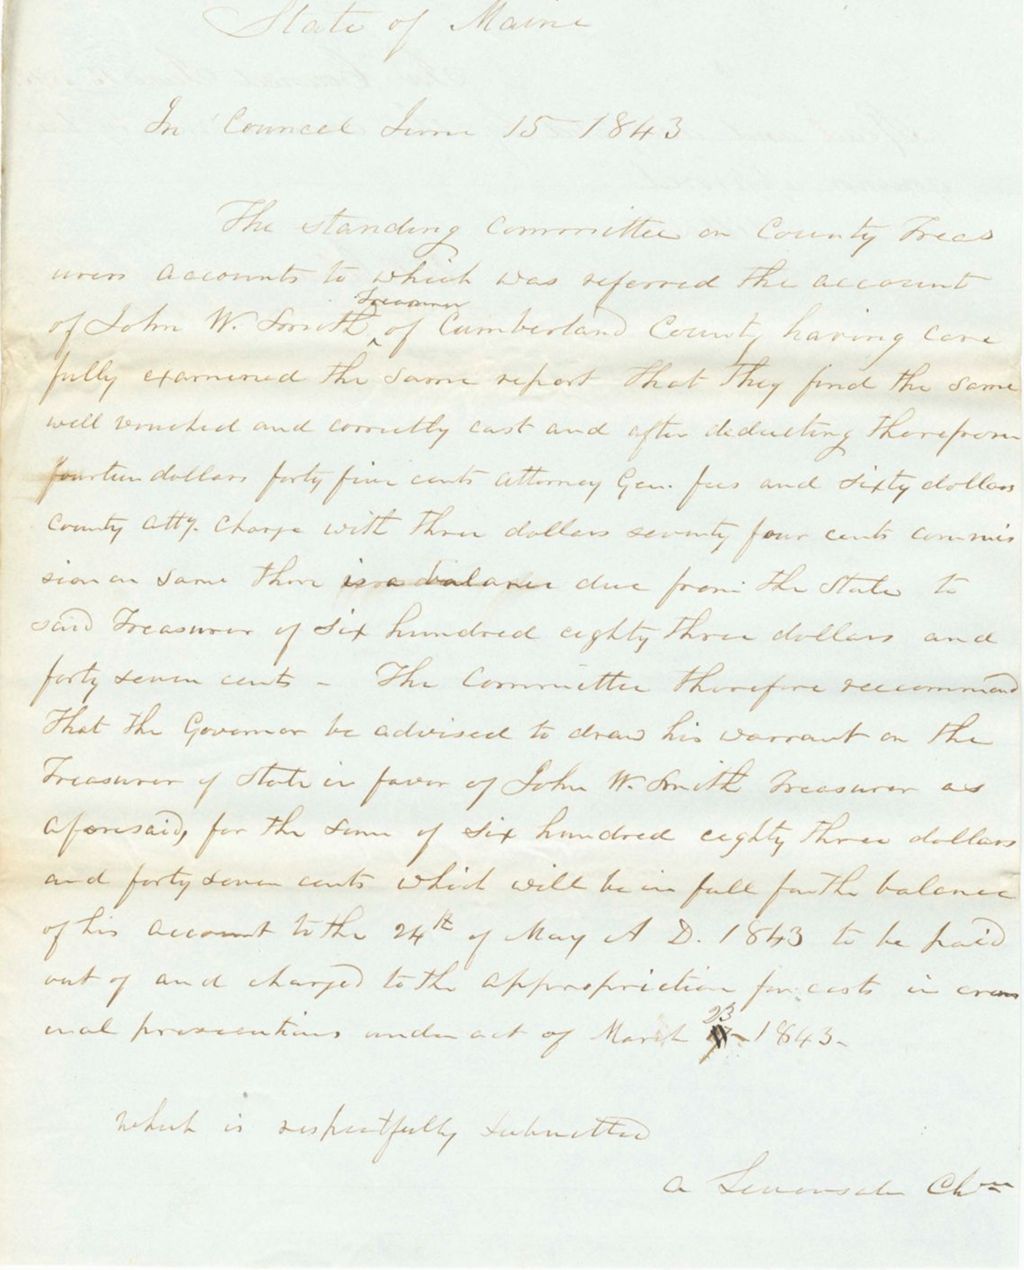 State of Maine
In Council June 15 1843
The standing Committee on County Treas
urers accounts to which was referred the account
Treasurer
of John W. Smith ^ of Cumberland County having care
fully examined the same report that they find the same
well vouched and correctly cast and after deducting therefrom
fourteen dollars forty five cents attorney Gen. fees and sixty dollars
County atty. charge with three dollars seventy four cents commis
sion on same there is a balance due from the State to
said Treasurer of six hundred eighty three dollars and
forty seven cents - The Committee therefore reccommend
that the Governor be advised to draw his warrant on the
Treasurer of State in favor of John W. Smith Treasurer as
aforesaid, for the sum of six hundred eighty three dollars
and forty seven cents which will be in full for the balance
of his account to the 24th of May A D. 1843 to be paid
out of and charged to the appropriation for costs in crim
inal prosecutions under act of March
23
1843-
which is respectfully submitted
a Chm